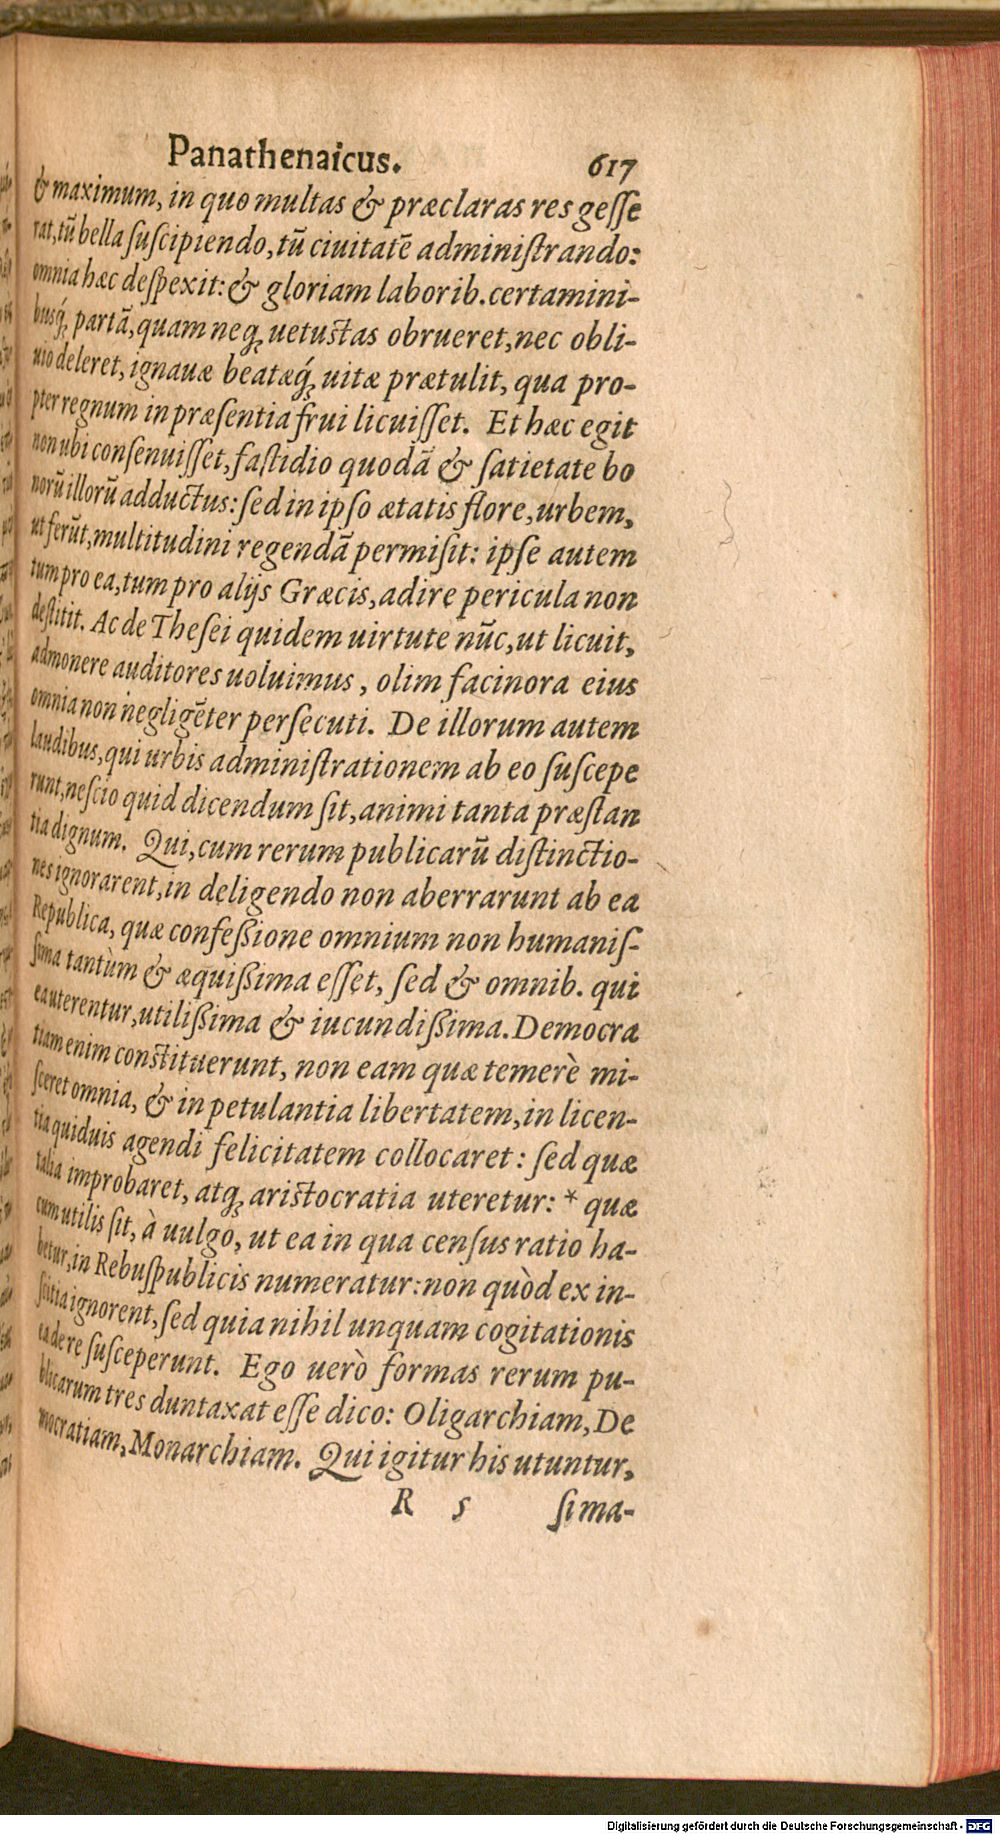 Panathenaicus. 617
& maximum, in quo multas & præclaras res gesse
rat, tũ bella suscipiendo, tũ ciuitatẽ administrando:
omnia hæc despexit: & gloriam laborib. certamini-
busq́; partã, quam neq; uetustas obrueret, nec obli-
uio deleret, ignauæ beatæq́; uitæ prætulit, qua pro-
pter regnum in præsentia frui licuisset. Et hæc egit
non ubi consenuisset, fastidio quodã & satietate bo
norũ illorũ adductus: sed in ipso ætatis flore, urbem,
ut ferũt, multitudini regendã permisit: ipse autem
tum pro ea, tum pro alijs Græcis, adire pericula non
destitit. Ac de Thesei quidem uirtute nũc, ut licuit,
admonere auditores uoluimus, olim facinora eius
omnia non negligẽter persecuti. De illorum autem
laudibus, qui urbis administrationem ab eo suscepe
runt, nescio quid dicendum sit, animi tanta præstan
tia dignum. Qui, cum rerum publicarũ distinctio-
nes ignorarent, in deligendo non aberrarunt ab ea
Republica, quæ confeßione omnium non humanis-
sima tantùm & æquißima esset, sed & omnib. qui
ea uterentur, utilißima & iucundißima. Democra
tiam enim constituerunt, non eam quæ temerè mi-
sceret omnia, & in petulantia libertatem, in licen-
tia quiduis agendi felicitatem collocaret: sed quæ
talia improbaret, atq; aristocratia uteretur: * quæ
cum utilis sit, à uulgo, ut ea in qua census ratio ha-
betur, in Rebuspublicis numeratur: non quòd ex in-
scitia ignorent, sed quia nihil unquam cogitationis
ea de re susceperunt. Ego uerò formas rerum pu-
blicarum tres duntaxat esse dico: Oligarchiam, De
mocratiam, Monarchiam. Qui igitur his utuntur,
R 5 sima-
Digitalisierung gefördert durch die Deutsche Forschungsgemeinschaft - DFG